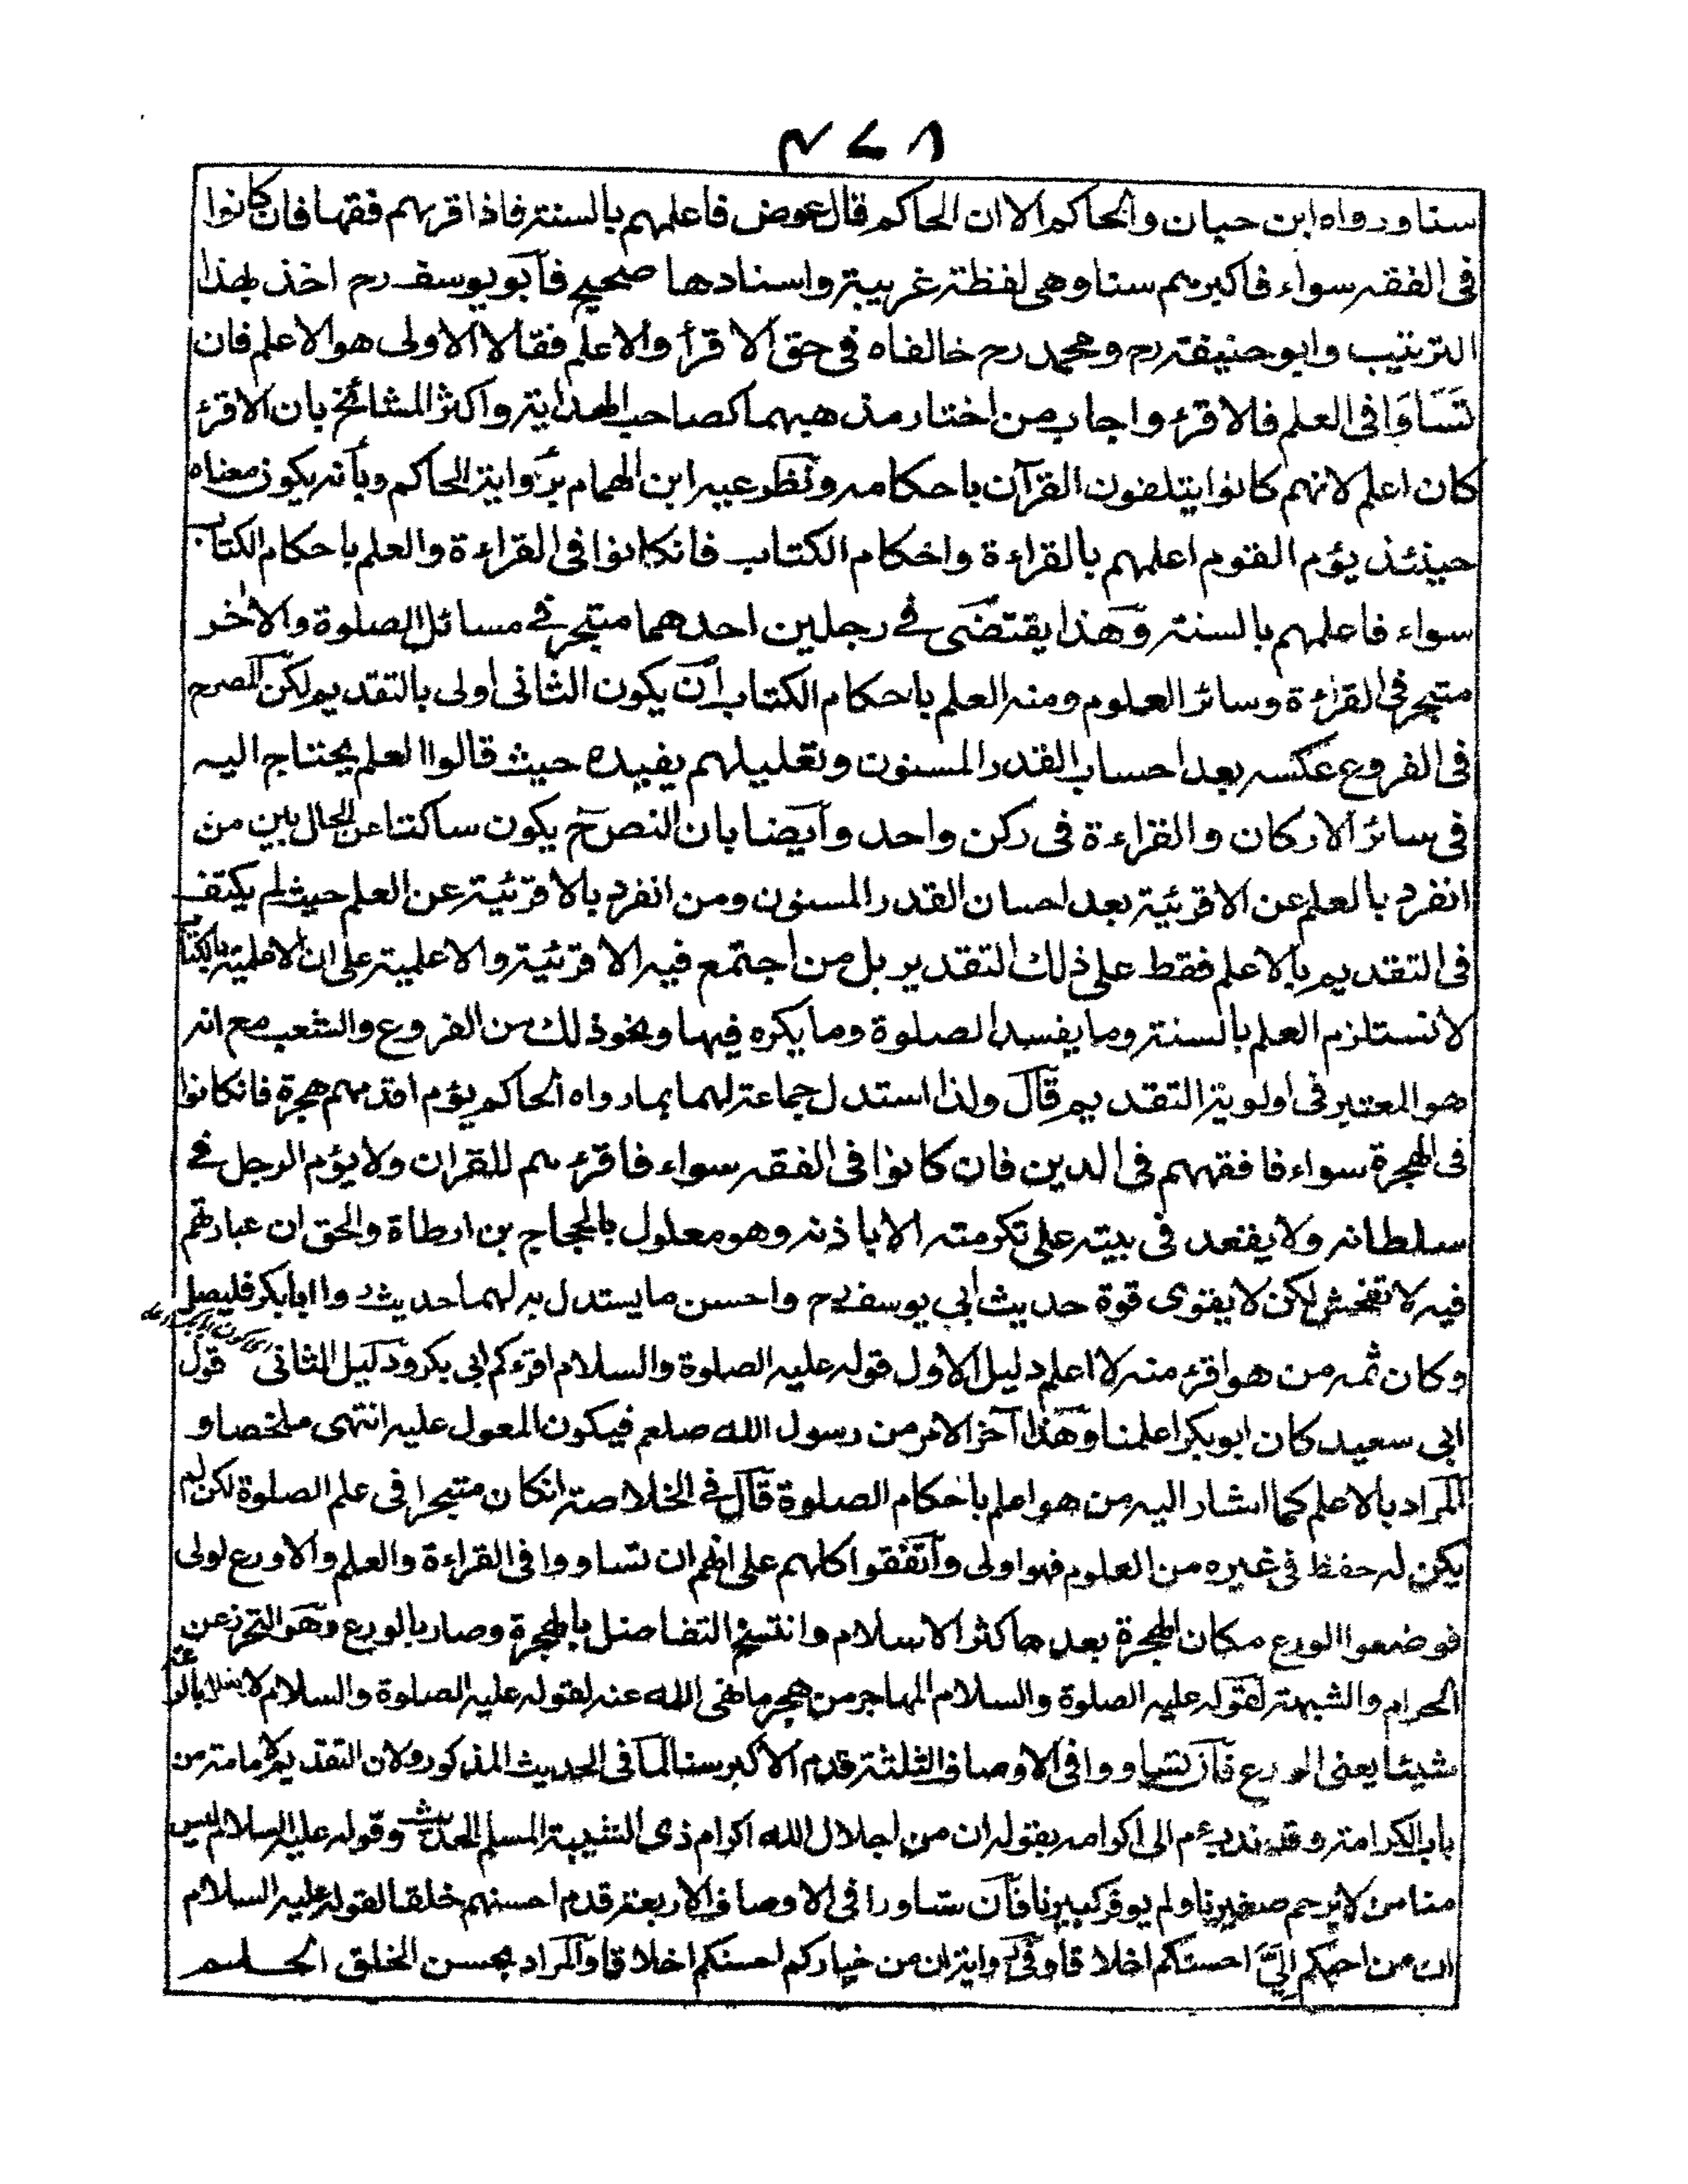 ۴۷۸
سنا ورواه ابن حبان والحاكم الا ان الحاكم قال عوض فاعلمهم بالسنة فاذا قربهم فقها فان كانوا
فى الفقه سواء فاكبرهم سنا وهى لفظة غريبة واسنادها صحيح فابو يوسف رح اخذ بهذا
الترتيب وابو حنيفة رح ومحمد رح خالفاه فى حق الاقرأ والاعلم فقالا الاولى هو الاعلم فان
تساوَا فى العلم فالاقرء واجاب من اختار مذهبهما كصاحب الهداية واكثر المشائخ بان الاقرء
كان اعلم لانهم كانوا يتلفون القرآن باحكامه ونظر عيبه ابن الهمام برواية الحاكم وبأنه يكون معناه
حينئذ يؤم القوم اعلمهم بالقراءة واحكام الكتاب فانكانوا فى القراءة والعلم باحكام الكتاب
سواء فاعلمهم بالسنة وهذا يقتضى فى رجلين احدهما متبحر فى مسائل الصلوة والاخر
متبحر فى القراءة وسائر العلوم ومنه العلم باحكام الكتاب ان يكون الثانى اولى بالتقديم لكن المصرح
فى الفروع عكسه بعد احساب القدر المسنون وتعليلهم يفيده حيث قالوا العلم يحتاج اليه
فى سائر الاركان والقراءة فى ركن واحد وايضا بان النص ح يكون ساكتا عن الحال بين من
انفرد بالعلم عن الاقرئية بعد احسان القدر المسنون ومن انفرد بالاقرئية عن العلم حيث لم يكتف
فى التقديم بالاعلم فقط على ذلك التقدير بل من اجتمع فيه الاقرئية والاعلمية على ان الاعلمية بالكتاب
لا تستلزم العلم بالسنة وما يفسد الصلوة وما يكره فيها ونحو ذلك من الفروع والشعب مع انه
هو المعتبر فى اولوية التقديم قال ولذا استدل جماعة لهما بما رواه الحاكم يؤم اقدمهم هجرة فانكانوا
فى الهجرة سواء فافقههم فى الدين فان كانوا فى الفقه سواء فاقرءهم للقران ولا يؤم الرجل فى
سلطانه ولا يقعد فى بيته على تكرمته الا باذنه وهو معلول بالحجاج بن ارطاة والحق ان عبارتهم
فيه لا تفحش لكن لا يقوى قوة حديث ابى يوسف رح واحسن ما يستدل به لهما حديث وا ابابكر فليصل
وكان ثمه من هو اقرء منه لا اعلم دليل الاول قوله عليه الصلوة والسلام اقرءكم ابى بكر ودليل الثانى قول
ابى سعيد كان ابوبكر اعلمنا وهذا آخر الامر من رسول الله صلعم فيكون المعول عليه انتهى ملخصا و
المراد بالاعلم كما اشار اليه من هو اعلم باحكام الصلوة قال فى الخلاصة انكان متبحرا فى علم الصلوة لكن لم
يكن له حفظ فى غيره من العلوم فهو اولى واتفقوا كلهم على انهم ان تساووا فى القراءة والعلم والاورع لولى
فوضعوا الورع مكان الهجرة بعد ما كثر الاسلام وانتسخ التفاضل بالهجرة وصار بالورع وهو التحرز عن
الحرام والشبهة لقوله عليه الصلوة والسلام المهاجر من هجر ما نهى الله عنه لقوله عليه الصلوة والسلام لا
شيئا يعنى الورع فان تساووا فى الاوصاف الثلثة قدم الاكبر سنا لما فى الحديث المذكور ولان التقديم للامامة من
باب الكرامة وقد ندبهم الى اكرامه بقوله ان من اجلال الله اكرام ذى الشيبة المسلم الحديث وقوله عليه السلام ليس
منا من لا يرحم صغيرنا ولم يوقر كبيرنا فان تساورا فى الاوصاف الاربعة قدم احسنهم خلقا لقوله عليه السلام
ان من احبكم الىّ احسنكم اخلاقا وفى رواية ان من خياركم احسنكم اخلاقا والمراد بحسن الخلق الحلم